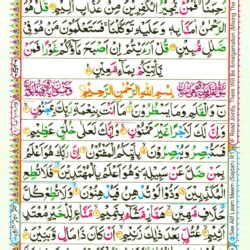 رَحِمَنَا فَمَنْ يُّجِيْرُ الْكٰفِرِيْنَ مِنْ عَذَابٍ اَلِيْمٍ قُلْ هُوَ
الرَّحْمٰنُ اٰمَنَّا بِهٖ وَعَلَيْهِ تَوَكَّلْنَا فَسَتَعْلَمُوْنَ مَنْ هُوَ فِيْ
ضَلٰلٍ مُّبِيْنٍ قُلْ اَرَءَيْتُمْ اِنْ اَصْبَحَ مَآؤُكُمْ غَوْرًا فَمَنْ
يَّاْتِيْكُمْ بِمَآءٍ مَّعِيْنٍ
بِسْمِ اللّٰهِ الرَّحْمٰنِ الرَّحِيْمِ
نٓ وَالْقَلَمِ وَمَا يَسْطُرُوْنَ مَآ اَنْتَ بِنِعْمَةِ رَبِّكَ بِمَجْنُوْنٍ
وَاِنَّ لَكَ لَاَجْرًا غَيْرَ مَمْنُوْنٍ وَاِنَّكَ لَعَلٰى خُلُقٍ عَظِيْمٍ
فَسَتُبْصِرُ وَيُبْصِرُوْنَ بِاَيِّكُمُ الْمَفْتُوْنُ اِنَّ رَبَّكَ هُوَ اَعْلَمُ
بِمَنْ ضَلَّ عَنْ سَبِيْلِهٖ وَهُوَ اَعْلَمُ بِالْمُهْتَدِيْنَ فَلَا تُطِعِ
الْمُكَذِّبِيْنَ وَدُّوْا لَوْ تُدْهِنُ فَيُدْهِنُوْنَ وَلَا تُطِعْ كُلَّ
حَلَّافٍ مَّهِيْنٍ هَمَّازٍ مَّشَّآءٍ بِنَمِيْمٍ مَّنَّاعٍ لِّلْخَيْرِ مُعْتَدٍ
Read Jointly, There Will Be Amalgamation (Mixing The